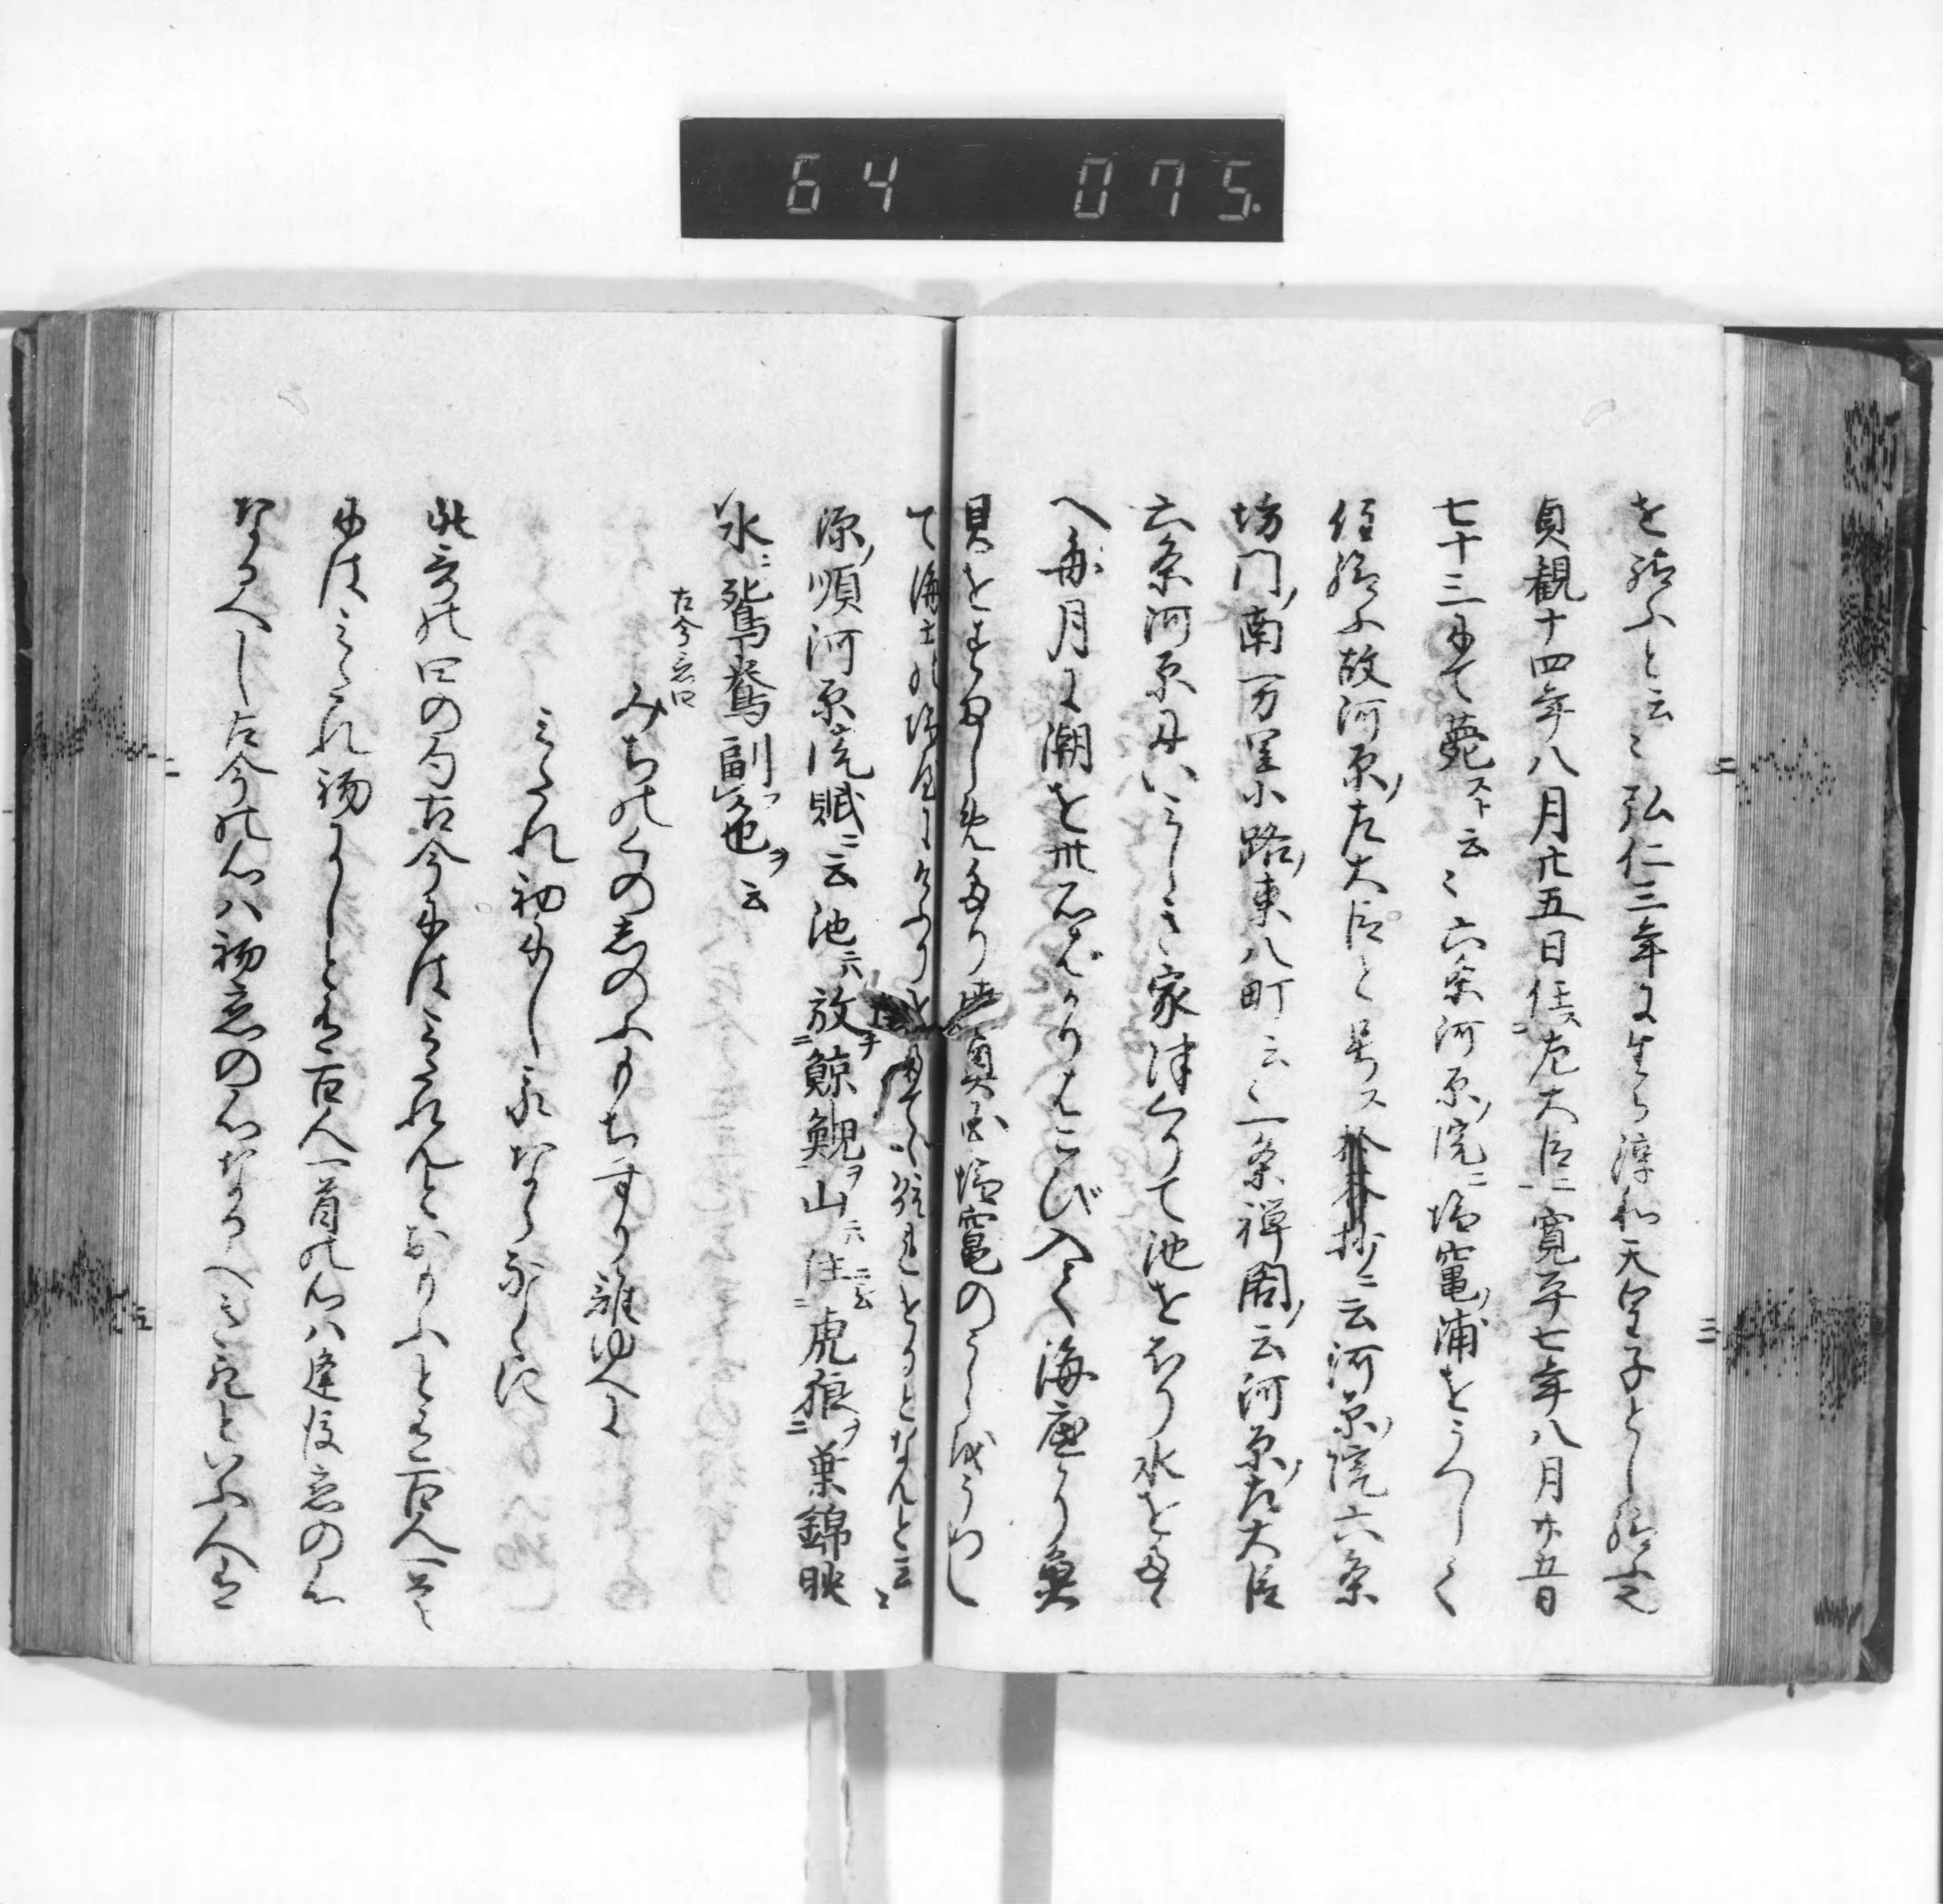 64 075
を給ふと云〻弘仁三年に生る淳和天皇子とし給ふ
貞観十四年八月廿五日任左大臣ニ寛平七年八月廿五日
七十三にて薨スト云〻六条河原ノ院ニ塩竈ノ浦をうつして
住給ふ故河原ノ左大臣と号ス拾芥抄ニ云河原ノ院六条
坊門ノ南万里小路ノ東八町云〻一条禅閤ノ云河原ノ左大臣
六条河原にいみしき家津くりて池をほり水をたゝ
へ毎月に潮を卅石ばかりはこび入て海底の魚
貝をすましめたり奥州塩竈のうらをうつし
て海士の塩屋に
源ノ順河原院賦ニ云池ニ放鯨鯢ヲ山ニ住虎狼ヲ葉錦映
水ニ鴛鴦副フ色ヲ云
古今恋四
みちのくの忍ふもちすり誰ゆへに
みたれ初にし我ならなくに
此哥の四の句古今にはみたれんとおもふと有百人一首
にはみたれ初にしと有百人一首の心は逢後恋の心
なるへし古今の心ハ初恋の心なるへき歟といふ人有